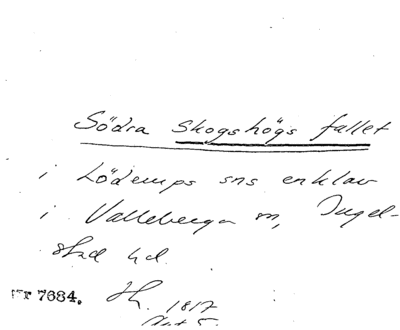 Södra Skogshögs fallet
i Löderups sns enklav
i Valleberga sn, Ingel-
stad hd.
nr 7684. Hk. 1817
Akt 5.